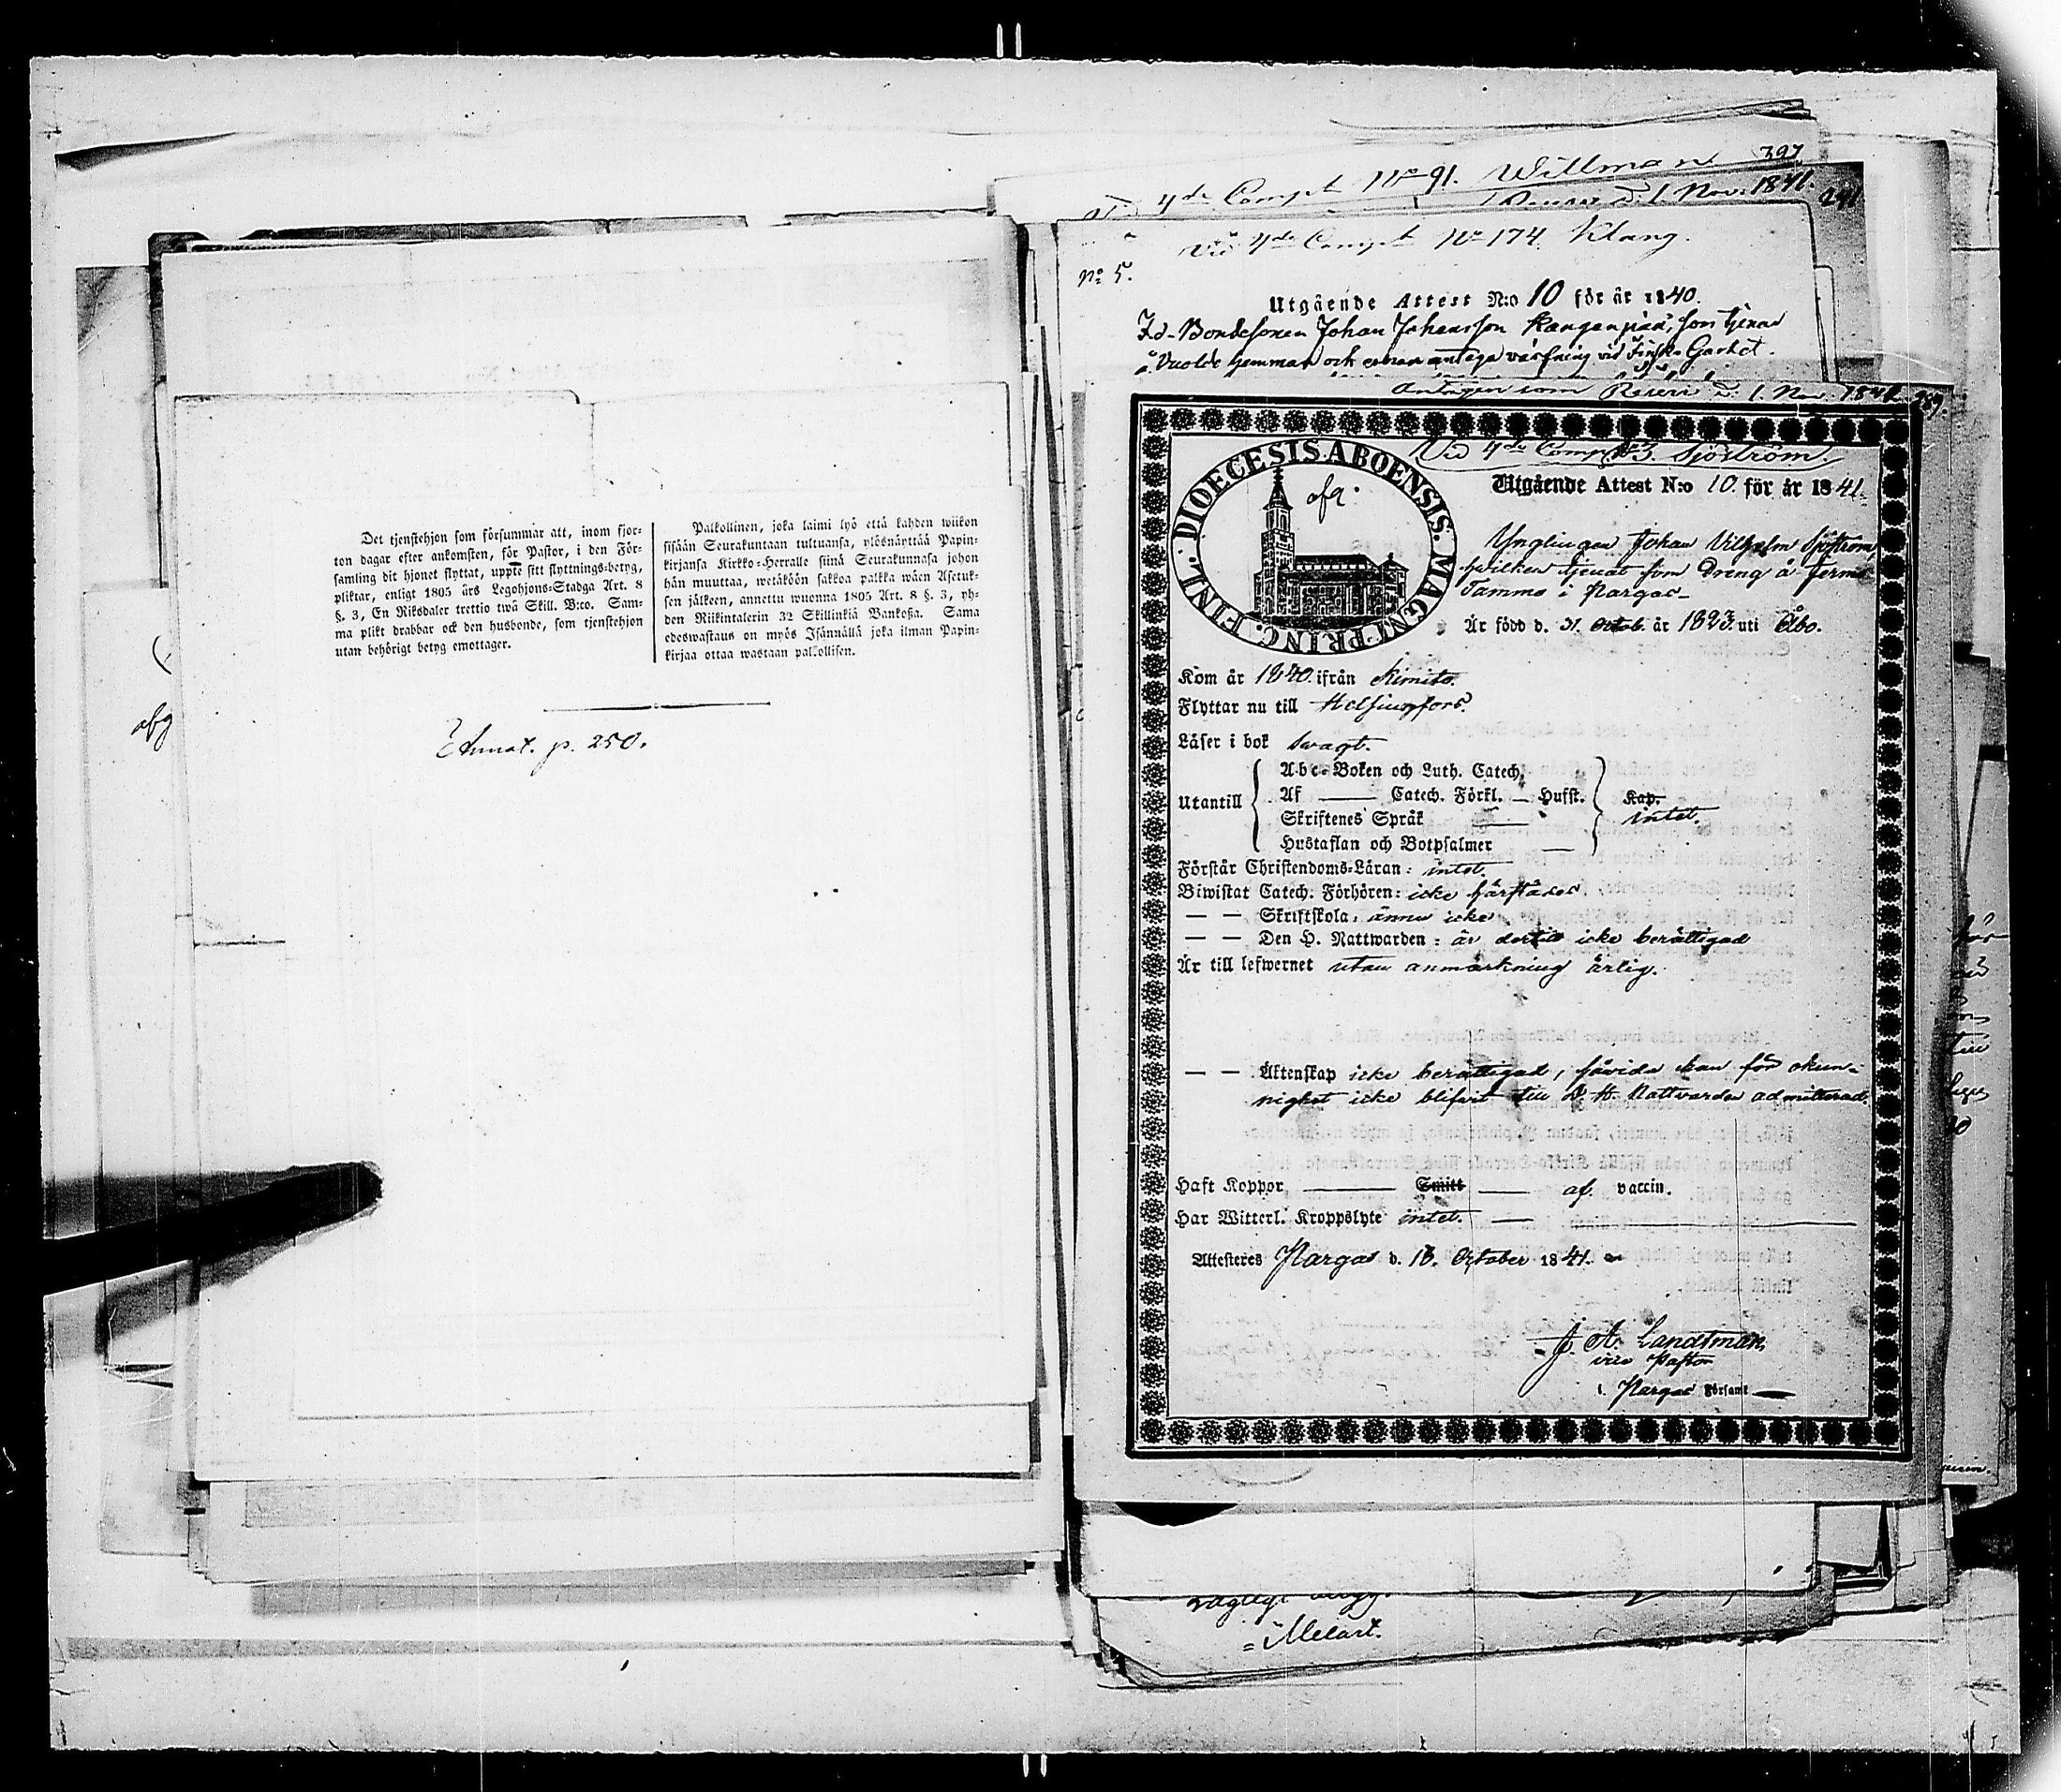 Det tjenstehjon som försummar att, inom fjor-
ton dagar efter ankomsten, för Pastor, i den För-
samling dit hjonet flyttat, uppte sitt flyttnings-betyg,
pliktar, enligt 1805 års Legohjons-Stadga Art. 8
§. 3, En Riksdaler trettio twå Skill. B:co. Sam-
ma plikt drabbar ock den husbonde, som tjenstehjon
utan behörigt betyg emottager.
Palkollinen, joka laimi lyö että kahden wiikon
sisään Seurakuntaan tultuansa, ylösnäyttää Papin-
kirjansa Kirkko-Herralle siinä Seurakunnasa johon
hän muuttaa, wetäköön sakkoa palkka wäen Asetuk-
sen jälkeen, annettu wuonna 1805 Art. 8 §. 3, yh-
den Riikintalerin 32 Skillinkiä Bankosa. Sama
edeswastaus on myös Isännällä joka ilman Papin-
kirjaa ottaa wastaan palkollisen.
Annot. p. 250.
afg
4de Comp. No 91. Willman 397
Reserv d. 1. Nov. 1841. 291
Vid 4de Comp. No 174. Klang.
No 5.
Utgående Attest N:o 10 för år 1840.
Johan Johansson
antaga värfning vid Finska Gardet.
Antagen som Reserv d. 1. Nov. 1841. 289.
Vid 4de Comp. No 3. Sjöström.
DIOECESIS ABOENSIS. MAGNI PRINC. FINL.
afg.
Utgående Attest N:o 10. för år 1841.
Ynglingen Johan Vilhelm Sjöström,
hvilken tjenat som Dreng å Jerms
Tammo i Pargas
Är född d. 31. Octob. år 1823. uti Åbo.
Kom år 1840. ifrån Kimito.
Flyttar nu till Helsingfors.
Läser i bok svagt.
Utantill
Abc-Boken och Luth. Catech.
Af — Catech. Förkl. — Husst.
Skriftenes Språk —
Hustaflan och Botpsalmer —
Kap.
intet.
Förstår Christendoms-Läran: intet.
Biwistat Catech. Förhören: icke härstädes.
— — Skriftskola: ännu icke
— — Den H. Nattwarden: är dertill icke berättigad
Är till lefwernet utan anmärkning ärlig.
— — Äktenskap icke berättigad, såvida han för okun-
nighet icke blifvit till D. H. Nattvarden admitterad.
Haft Koppor — Smitt — af. vaccin.
Har Witterl. Kroppslyte intet. —
Attesteres Pargas d. 16. October 1841.
J. A. Landtman
vice Pastor
i. Pargas Församl.
= Melart.